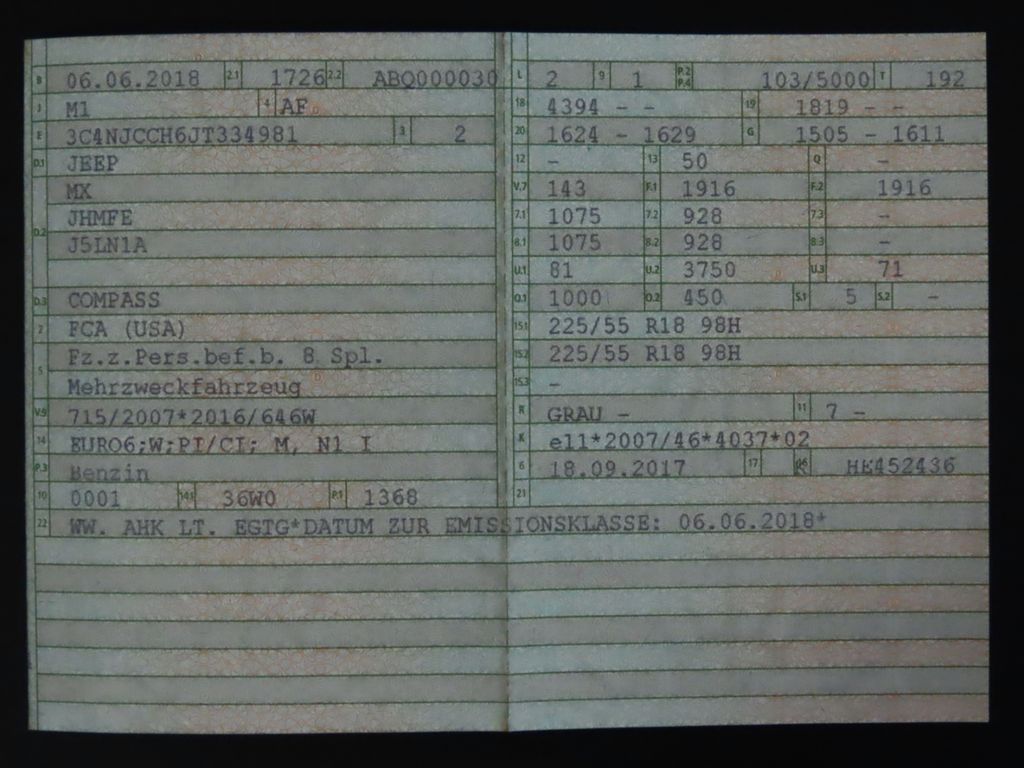 B 06.06.2018 2.1 1726 2.2 ABQ000030
J M1 4 AF
E 3C4NJCCH6JT334981 3 2
D.1 JEEP
MX
D.2 JHMFE
J5LN1A
D.3 COMPASS
2 FCA (USA)
5 Fz.z.Pers.bef.b. 8 Spl.
Mehrzweckfahrzeug
V.9 715/2007*2016/646W
14 EURO6;W;PI/CI; M, N1 I
P.3 Benzin
10 0001 14.1 36W0 P.1 1368
22 WW. AHK LT. EGTG*DATUM ZUR EMISSIONSKLASSE: 06.06.2018*
L 2 9 1 P.2 P.4 103/5000 T 192
18 4394 - - 19 1819 - -
20 1624 - 1629 G 1505 - 1611
12 - 13 50 Q -
V.7 143 F.1 1916 F.2 1916
7.1 1075 7.2 928 7.3 -
8.1 1075 8.2 928 8.3 -
U.1 81 U.2 3750 U.3 71
O.1 1000 O.2 450 S.1 5 S.2 -
15.1 225/55 R18 98H
15.2 225/55 R18 98H
15.3 -
R GRAU - 11 7 -
K e11*2007/46*4037*02
6 18.09.2017 17 K 16 HE452436
21